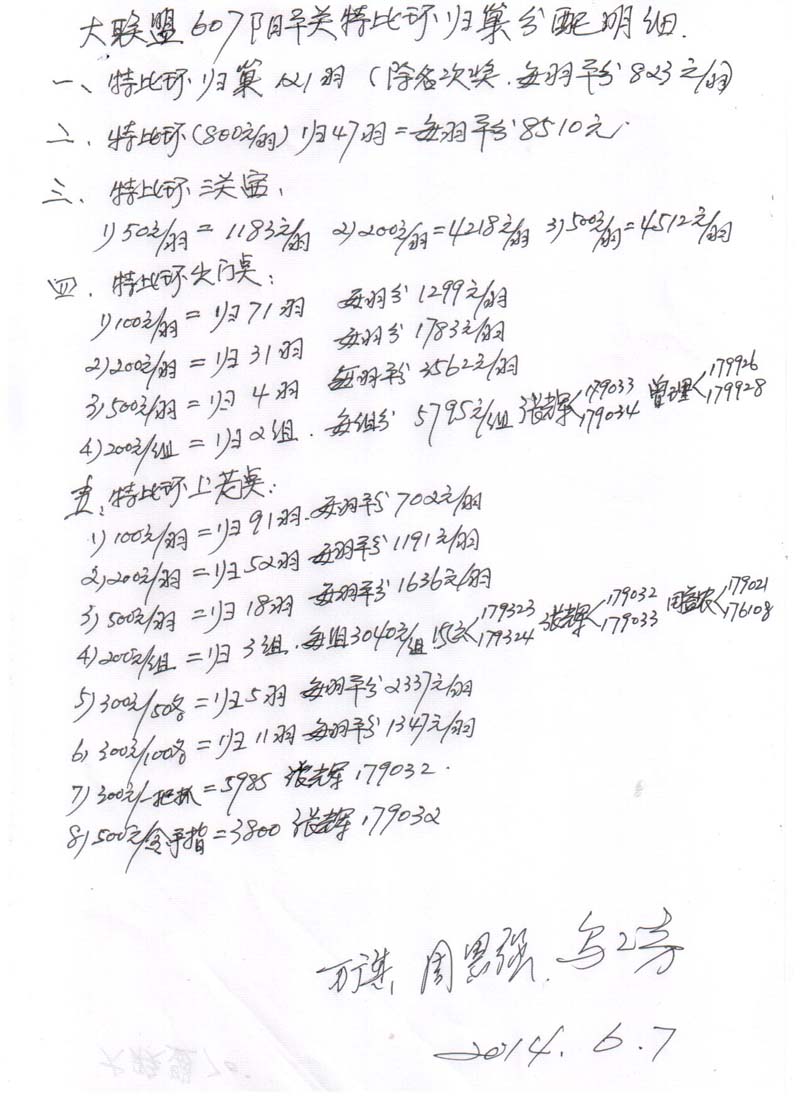 大联盟607阳平关特比环归巢分配明细.
一、特比环归巢121羽(除名次奖.每羽平分823元/羽)
二、特比环(800元/羽)归47羽=每羽平分8510元.
三、特比环三关赛、
1)50元/羽=1183元/羽 2)200元/羽=4218元/羽 3)500元/羽=4512元/羽
四、特比环龙门桌:
1)100元/羽=归71羽 每羽分1299元/羽
2)200元/羽=归31羽 每羽分1783元/羽
3)500元/羽=归4羽 每羽平分3562元/羽
4)200元/组=归2组.每组分5795元/组 179033 179034 179926 179928
五、特比环上桌:
1)100元/羽=归91羽.每羽平分702元/羽
2)200元/羽=归52羽 每羽平分1191元/羽
3)500元/羽=归18羽 每羽平分1636元/羽
4)200元/组=归3组.每组3040元/组 179323 179324 179032 179033 179021 176108
5)300元/50名=归5羽 每羽平分2337元/羽
6)300元/100名=归11羽 每羽平分1347元/羽
7)300元/一把抓=5985 179032.
8)500元/金手指=3800 179032
周恩强
2014.6.7